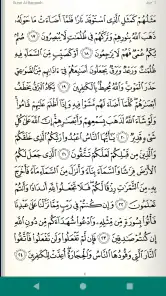 مَثَلُهُمْ كَمَثَلِ ٱلَّذِى ٱسْتَوْقَدَ نَارًا فَلَمَّآ أَضَآءَتْ مَا حَوْلَهُۥ
ذَهَبَ ٱللَّهُ بِنُورِهِمْ وَتَرَكَهُمْ فِى ظُلُمَٰتٍ لَّا يُبْصِرُونَ ١٧
صُمٌّۢ بُكْمٌ عُمْىٌ فَهُمْ لَا يَرْجِعُونَ ١٨ أَوْ كَصَيِّبٍ مِّنَ ٱلسَّمَآءِ فِيهِ
ظُلُمَٰتٌ وَرَعْدٌ وَبَرْقٌ يَجْعَلُونَ أَصَٰبِعَهُمْ فِىٓ ءَاذَانِهِم مِّنَ ٱلصَّوَٰعِقِ
حَذَرَ ٱلْمَوْتِ وَٱللَّهُ مُحِيطٌۢ بِٱلْكَٰفِرِينَ ١٩ يَكَادُ ٱلْبَرْقُ يَخْطَفُ
أَبْصَٰرَهُمْ كُلَّمَآ أَضَآءَ لَهُم مَّشَوْا۟ فِيهِ وَإِذَآ أَظْلَمَ عَلَيْهِمْ قَامُوا۟
وَلَوْ شَآءَ ٱللَّهُ لَذَهَبَ بِسَمْعِهِمْ وَأَبْصَٰرِهِمْ إِنَّ ٱللَّهَ عَلَىٰ كُلِّ
شَىْءٍ قَدِيرٌ ٢٠ يَٰٓأَيُّهَا ٱلنَّاسُ ٱعْبُدُوا۟ رَبَّكُمُ ٱلَّذِى خَلَقَكُمْ
وَٱلَّذِينَ مِن قَبْلِكُمْ لَعَلَّكُمْ تَتَّقُونَ ٢١ ٱلَّذِى جَعَلَ لَكُمُ
ٱلْأَرْضَ فِرَٰشًا وَٱلسَّمَآءَ بِنَآءً وَأَنزَلَ مِنَ ٱلسَّمَآءِ مَآءً فَأَخْرَجَ
بِهِۦ مِنَ ٱلثَّمَرَٰتِ رِزْقًا لَّكُمْ فَلَا تَجْعَلُوا۟ لِلَّهِ أَندَادًا وَأَنتُمْ
تَعْلَمُونَ ٢٢ وَإِن كُنتُمْ فِى رَيْبٍ مِّمَّا نَزَّلْنَا عَلَىٰ عَبْدِنَا
فَأْتُوا۟ بِسُورَةٍ مِّن مِّثْلِهِۦ وَٱدْعُوا۟ شُهَدَآءَكُم مِّن دُونِ ٱللَّهِ
إِن كُنتُمْ صَٰدِقِينَ ٢٣ فَإِن لَّمْ تَفْعَلُوا۟ وَلَن تَفْعَلُوا۟ فَٱتَّقُوا۟
ٱلنَّارَ ٱلَّتِى وَقُودُهَا ٱلنَّاسُ وَٱلْحِجَارَةُ أُعِدَّتْ لِلْكَٰفِرِينَ ٢٤